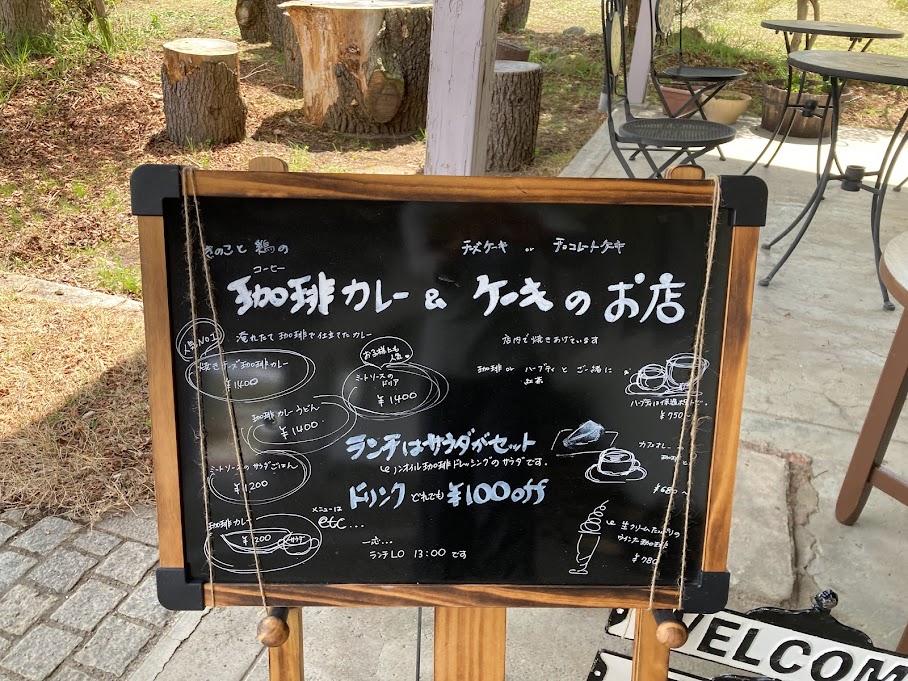 きのこと鶏の
チーズケーキ or チョコレートケーキ
コーヒー
珈琲カレー & ケーキのお店
人気NO1
淹れたて珈琲で仕立てたカレー
店内で焼きあげています
焼きチーズ珈琲カレー
¥1400
お子様にも
人気
ミートソースの
ドリア
¥1400
珈琲 or ハーブティと ご一緒に
紅茶
ハーブティは保温ポットで。
¥750~
珈琲カレーうどん
¥1400
ランチはサラダがセット
ノンオイル珈琲ドレッシングのサラダです。
カフェオレ
¥680~
ミートソースのサラダごはん
¥1200
ドリンク どれでも ¥100off
珈琲カレー
¥1200
サラダ
メニューは
etc...
一応...
ランチLO 13:00 です
生クリームたっぷりの
ウインナー珈琲
¥780
WELCOM